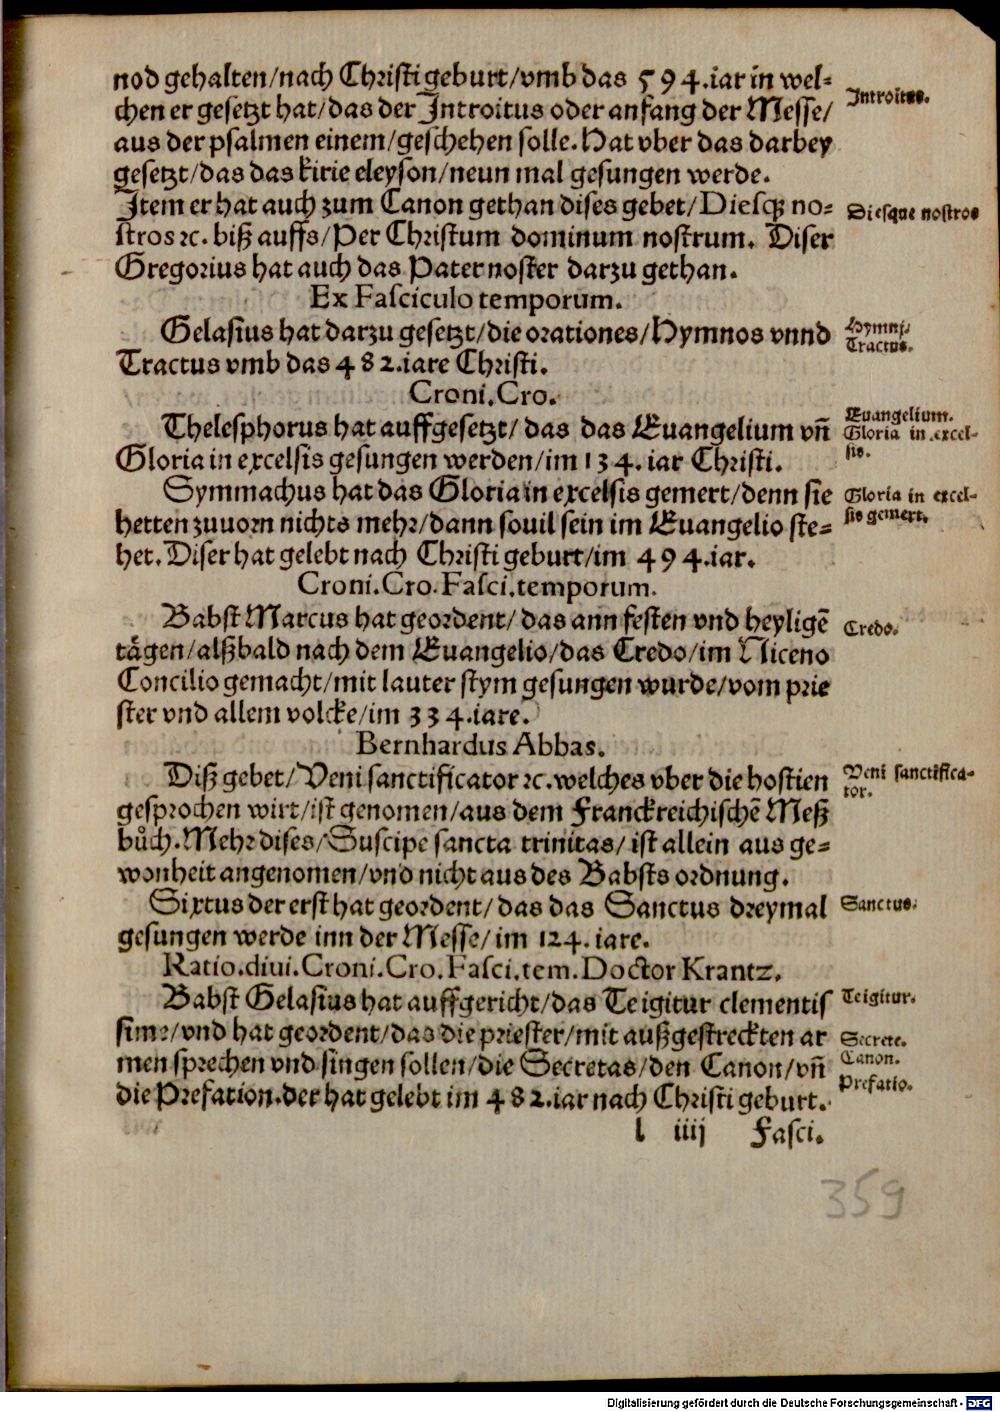 nod gehalten/nach Christi geburt/vmb das 594.iar in wel-
chen er gesetzt hat/das der Introitus oder anfang der Messe/
Introitus.
aus der psalmen einem/geschehen solle. Hat vber das darbey
gesetzt/das das kirie eleyson/neun mal gesungen werde.
Item er hat auch zum Canon gethan dises gebet/Diesq́ȝ no-
Diesque nostros
stros ꝛc. biß auffs/Per Christum dominum nostrum. Diser
Gregorius hat auch das Pater noster darzu gethan.
Ex Fasciculo temporum.
Gelasius hat darzu gesetzt/die orationes/Hymnos vnnd
Hymni.
Tractus.
Tractus vmb das 482.iare Christi.
Croni.Cro.
Thelesphorus hat auffgesetzt/ das das Euangelium vn̄
Euangelium.
Gloria in excel-
sis.
Gloria in excelsis gesungen werden/im 134. iar Christi.
Symmachus hat das Gloria in excelsis gemert/denn sie
Gloria in excel-
sis gemert.
hetten zuuorn nichts mehr/dann souil sein im Euangelio ste-
het. Diser hat gelebt nach Christi geburt/im 494.iar.
Croni.Cro.Fasci.temporum.
Babst Marcus hat geordent/ das ann festen vnd heyligē
Credo.
tågen/alßbald nach dem Euangelio/das Credo/im Niceno
Concilio gemacht/mit lauter stym gesungen wurde/vom prie
ster vnd allem volcke/im 334.iare.
Bernhardus Abbas.
Diß gebet/Veni sanctificator ꝛc. welches vber die hostien
Veni sanctifica-
tor.
gesprochen wirt/ist genomen/aus dem Franckreichischē Meß
bůch. Mehr dises/Suscipe sancta trinitas/ ist allein aus ge-
wonheit angenomen/vnd nicht aus des Babsts ordnung.
Sixtus der erst hat geordent/ das das Sanctus dreymal
Sanctus.
gesungen werde inn der Messe/im 124. iare.
Ratio.diui.Croni.Cro.Fasci.tem.Doctor Krantz.
Babst Gelasius hat auffgericht/das Te igitur clementis
Te igitur.
sime/vnd hat geordent/das die priester/mit außgestreckten ar
Secrete.
men sprechen vnd singen sollen/die Secretas/den Canon/vn̄
Canon.
die Prefation.der hat gelebt im 482.iar nach Christi geburt.
Prefatio.
l iiij Fasci.
359
Digitalisierung gefördert durch die Deutsche Forschungsgemeinschaft - DFG